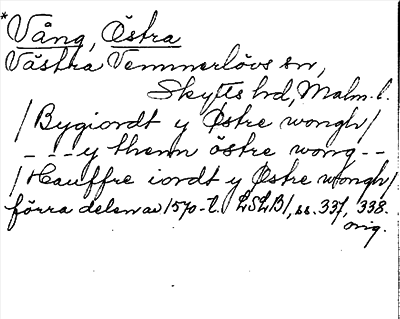 *Vång, Östra
Västra Vemmerlövs sn,
Skytts hd, Malm. l.
/Bygiordt y Østre wongh/
- - - y thenn östre wong - -
/Hauffre iordt y Østre wongh/
förra delen av 1570-t. LSLB1, ss. 337, 338.
orig.